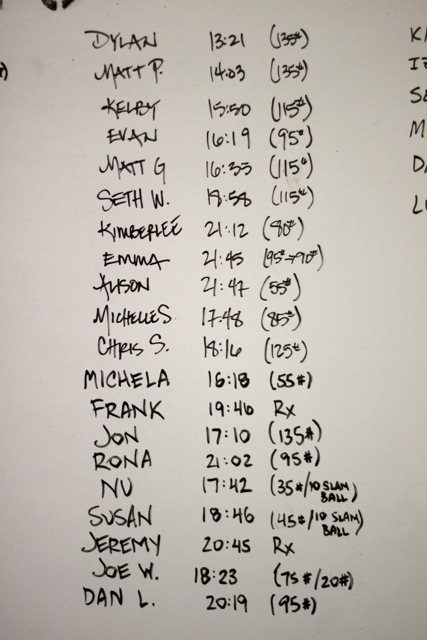 DYLAN 13:21 (135#)
MATT P. 14:03 (135#)
KELBY 15:50 (115#)
EVAN 16:19 (95#)
MATT G 16:33 (115#)
SETH W. 18:58 (115#)
KIMBERLEÉ 21:12 (80#)
EMMA 21:45 (95#→90#)
ALISON 21:47 (55#)
MICHELLE S 17:48 (85#)
CHRIS S. 18:16 (125#)
MICHELA 16:18 (55#)
FRANK 19:46 Rx
JON 17:10 (135#)
RONA 21:02 (95#)
NU 17:42 (35#/10 SLAM BALL)
SUSAN 18:46 (45#/10 SLAM BALL)
JEREMY 20:45 Rx
JOE W. 18:23 (75#/20#)
DAN L. 20:19 (95#)